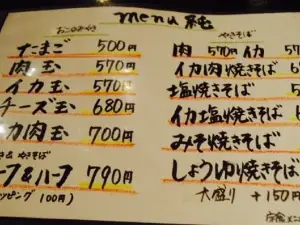 menu 純
おこのみやき
たまご 500円
肉玉 570円
イカ玉 570円
チーズ玉 680円
カ肉玉 700円
& やきそば
ーフ&ハーフ 790円
ッピング 100円)
やきそば
肉 570円 イカ 570
イカ肉焼きそば
塩焼きそば 570
イカ塩焼きそば
みそ焼きそば
しょうゆ焼きそば
大盛り +150円